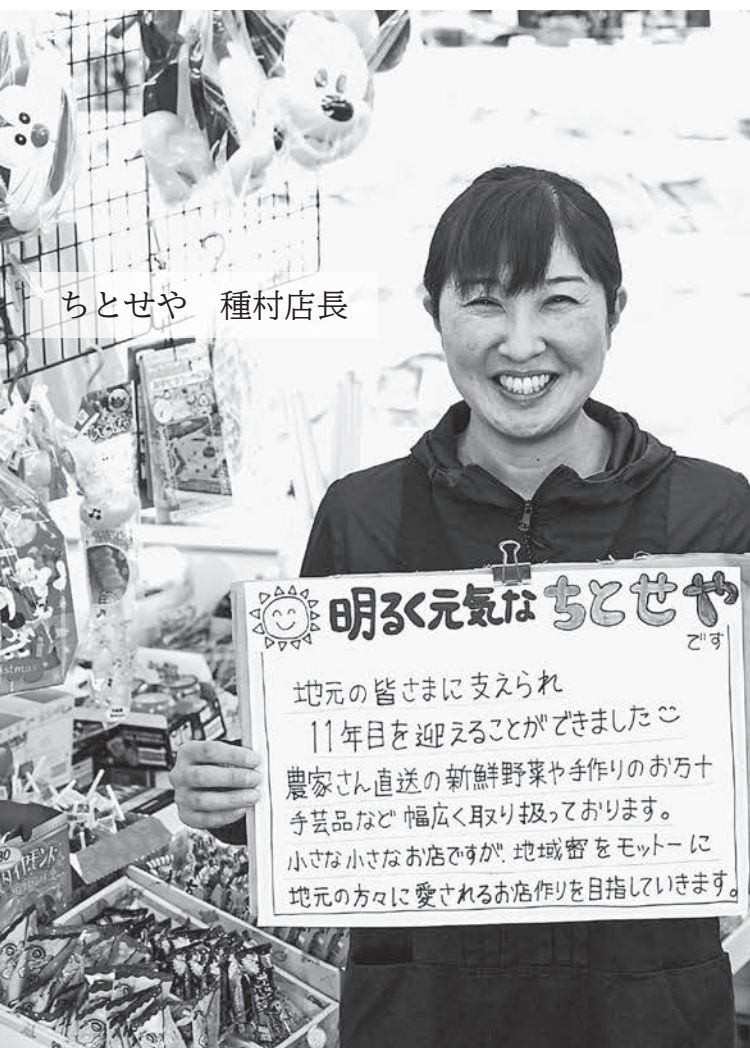 ちとせや　種村店長
明るく元気な ちとせや
です
地元の皆さまに支えられ
11年目を迎えることができました
農家さん直送の新鮮野菜や手作りのお万十
手芸品など幅広く取り扱っております。
小さな小さなお店ですが、地域密をモットーに
地元の方々に愛されるお店作りを目指していきます。